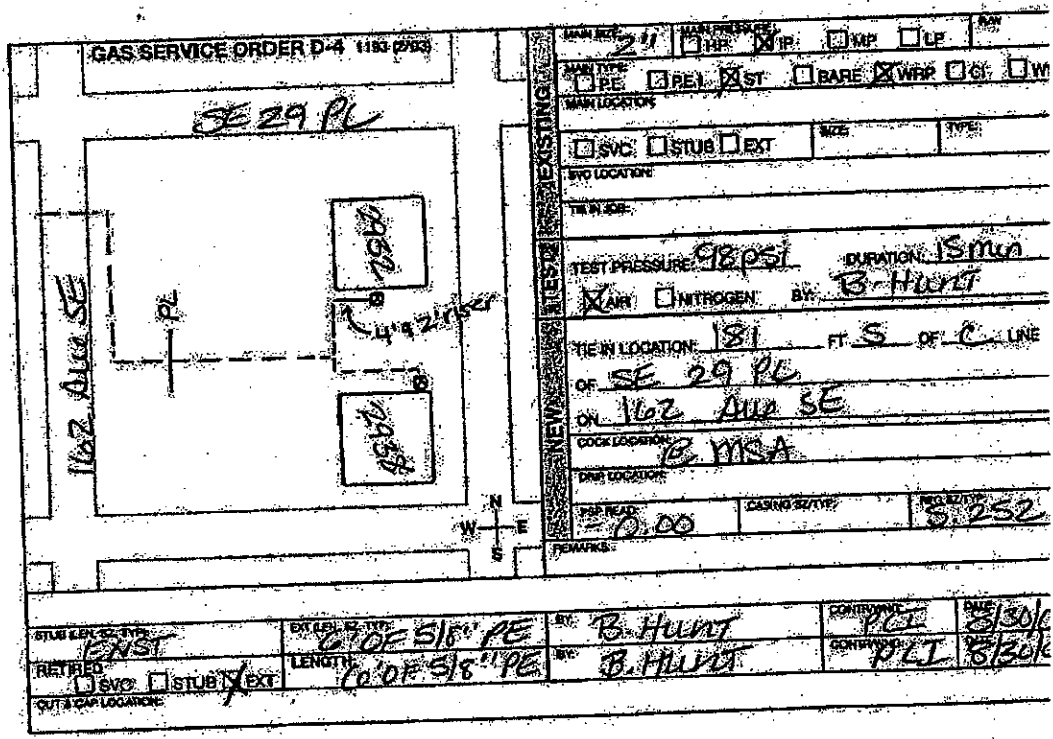 GAS SERVICE ORDER D-4 1193 (2/03)
SE 29 PL
162 Ave SE
PL
2952
4' & 2' riser
2958
N
W E
S
EXISTING
MAIN SIZE: 2"
MAIN PRESSURE: HP IP MP LP
MAIN TYPE: P.E. ST BARE WRP CI
MAIN LOCATION:
SVC STUB EXT SIZE: TYPE:
SVC LOCATION:
TIE IN JOB:
TEST
TEST PRESSURE: 98 psi DURATION: 15 min
AIR NITROGEN BY: B. Hunt
NEW
TIE IN LOCATION: 181 FT S OF C LINE
OF SE 29 PL
ON 162 Ave SE
COCK LOCATION: @ MSA
DRIP LOCATION:
PSP READ: 0.00 CASING SZ/TYP: REG SZ/TYP: S.252
REMARKS:
STUB LEN. SZ. TYP: EXST EXT LEN. SZ. TYP: 6' OF 5/8" PE BY: B. HUNT PCI DATE: 8/30/0
RETIRED SVC STUB EXT LENGTH: 6' OF 5/8" PE BY: B. HUNT PCI 8/30/0
CUT & CAP LOCATION: